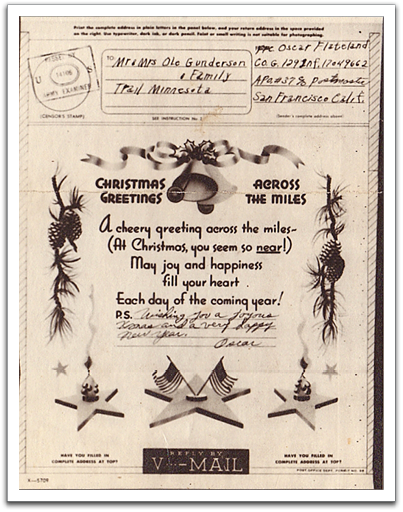 Print the complete address in plain letters in the panel below, and your return address in the space provided
on the right. Use typewriter, dark ink, or dark pencil. Faint or small writing is not suitable for photographing.
TO
Mr & Mrs Ole Gunderson
& Family
Trail Minnesota
Oscar Flateland
Co. G. 129 Inf. 17049662
A.P.O. #37 % Postmaster
San Francisco Calif.
U S
ARMY EXAMINER
(CENSOR'S STAMP)
SEE INSTRUCTION NO. 2
(Sender's complete address above)
CHRISTMAS GREETINGS
ACROSS THE MILES
A cheery greeting across the miles-
(At Christmas, you seem so near!)
May joy and happiness
fill your heart
Each day of the coming year!
P.S. Wishing you a joyous
Xmas and a very happy
New Year.
Oscar
HAVE YOU FILLED IN
COMPLETE ADDRESS AT TOP?
REPLY BY
V···—MAIL
HAVE YOU FILLED IN
COMPLETE ADDRESS AT TOP?